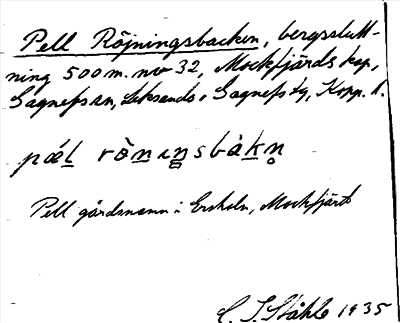 Pell Röjningsbacken, bergsslutt-
ning 500 m. nv 32, Mockfjärds kap,
Gagnefs sn, Leksands o Gagnefs tg, Kopp. l.
pǽl rö̀nɩŋsbàkn̥
Pell gårdsnamn i Ersholn, Mockfjärd
C. I. Ståhle 1935